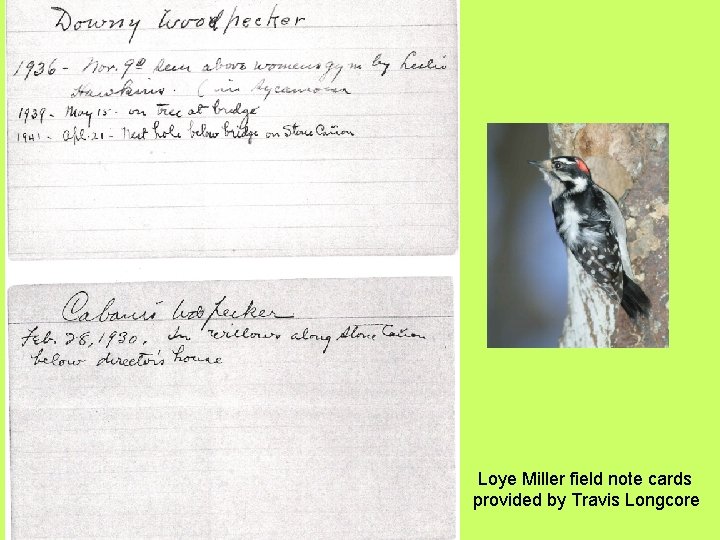 Downy Woodpecker
1936 - Nov. 9th seen above womens gym by Leslie
Hawkins. (in Sycamores
1939 - May 15 - on tree at bridge
1941 - Apl. 21 - Nest hole below bridge on Stone Cañon
Cabanis Wdpecker
Feb. 28, 1930. In willows along Stone Cañon
below director's house
Loye Miller field note cards
provided by Travis Longcore